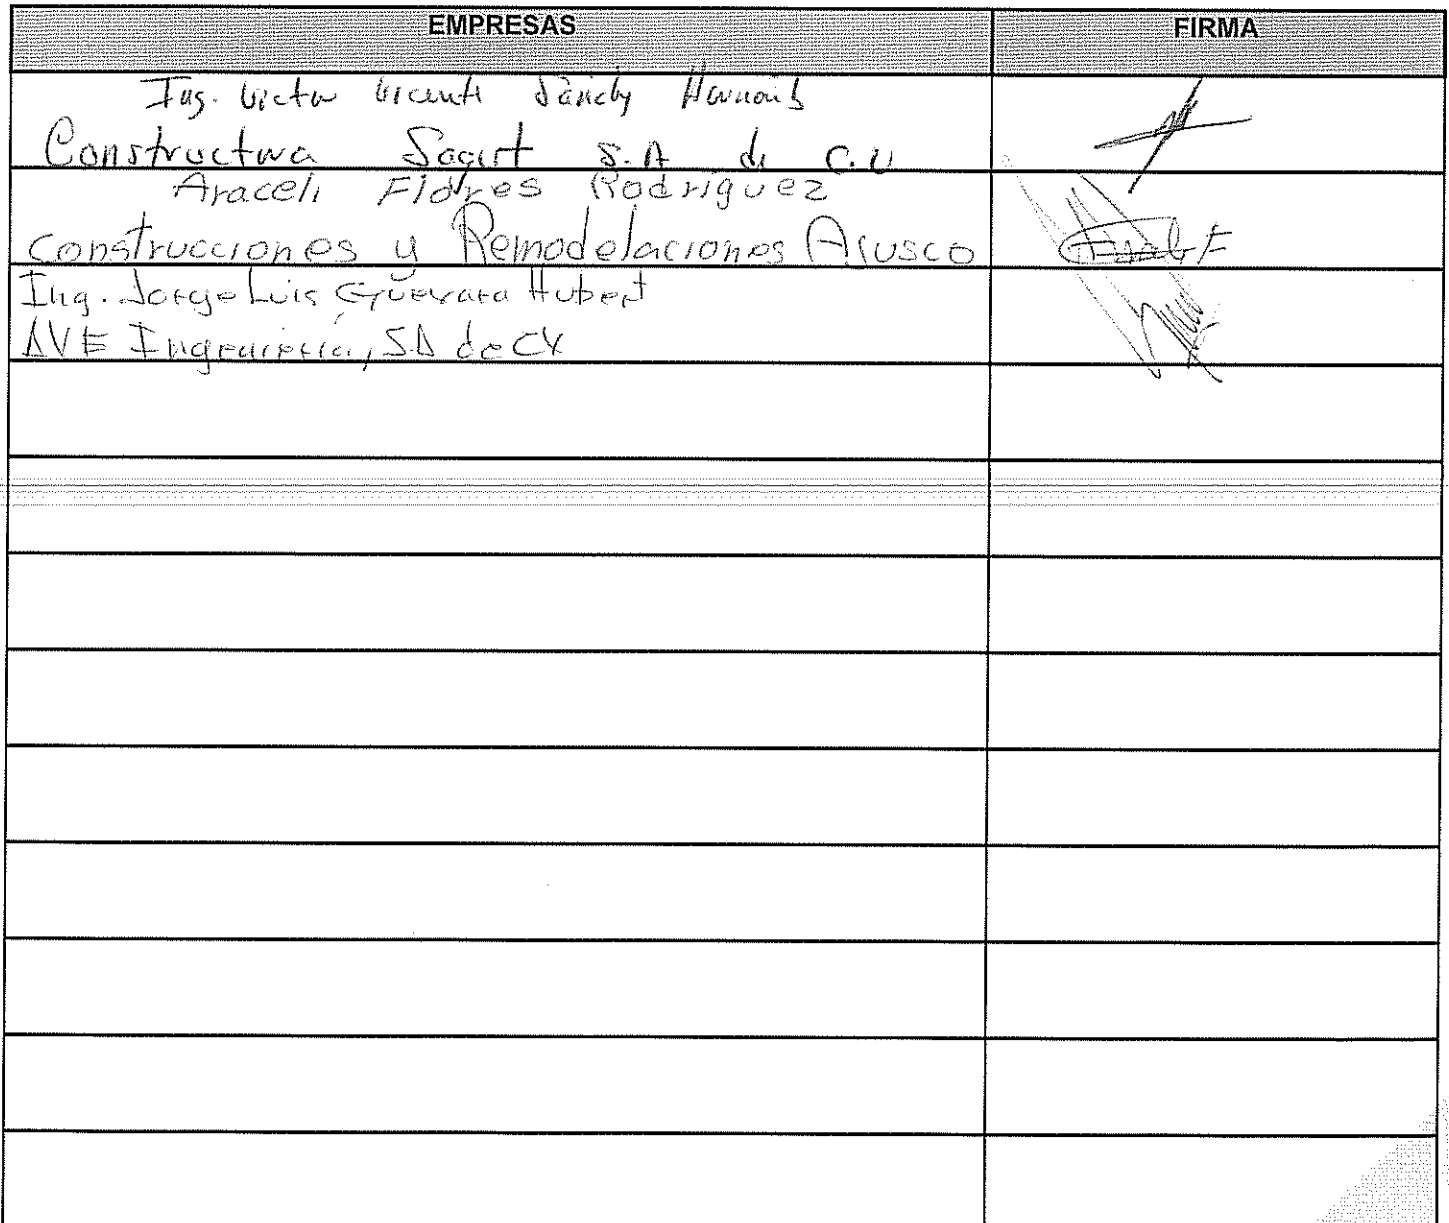 EMPRESAS FIRMA
Ing. Victor Vicente Sánchez
Constructora S.A de C.V
Araceli Flores Rodríguez
Construcciones y Remodelaciones Ajusco
Ing. Jorge Luis Guevara Hubert
AVE Ingeniería, S.A de CV